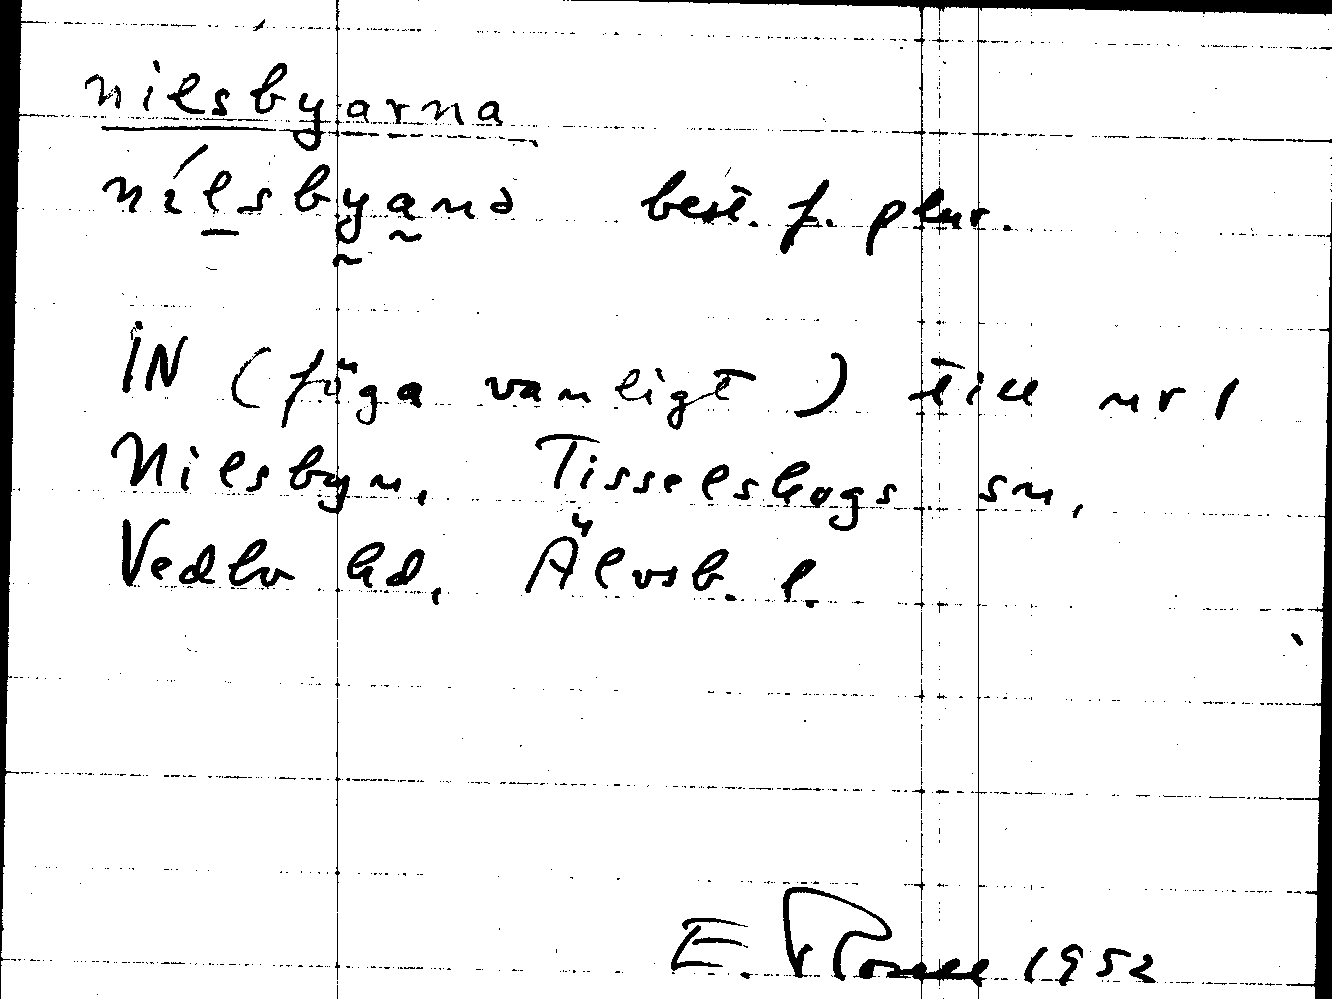 nilsbyarna
nílsbyanə best. f. plur.
IN (föga vanligt) till nr 1
Nilsbyn, Tisselskogs sn,
Vedbo hd, Älvsb. l.
E. 1952